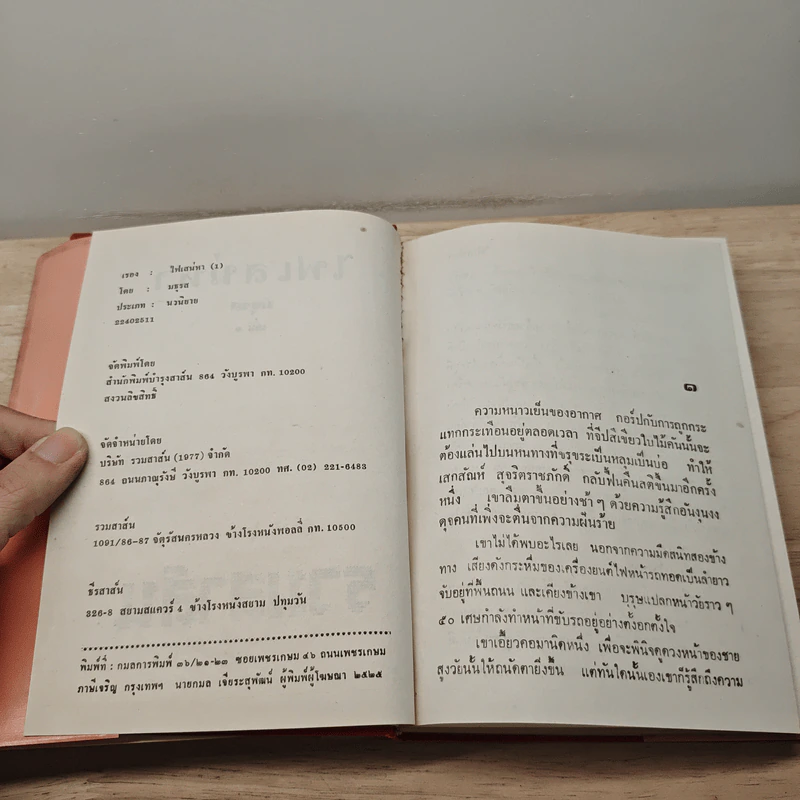 เรื่อง : ไฟเสน่หา (1)
โดย : มธุรส
ประเภท : นวนิยาย
22402511
จัดพิมพ์โดย
สำนักพิมพ์บำรุงสาส์น 864 วังบูรพา กท. 10200
สงวนลิขสิทธิ์
จัดจำหน่ายโดย
บริษัท รวมสาส์น (1977) จำกัด
864 ถนนภาณุรังษี วังบูรพา กท. 10200 ทศ. (02) 221-6483
รวมสาส์น
1091/86-87 จัตุรัสนครหลวง ข้างโรงหนังพอลลี่ กท. 10500
ธีรสาส์น
326-8 สยามสแควร์ 4 ข้างโรงหนังสยาม ปทุมวัน
พิมพ์ที่ : กมลการพิมพ์ ๓๖/๒๑-๒๓ ซอยเพชรเกษม ๔๖ ถนนเพชรเกษม
ภาษีเจริญ กรุงเทพฯ นายกมล เจียระสุพัฒน์ ผู้พิมพ์ผู้โฆษณา ๒๕๒๕
๑
ความหนาวเย็นของอากาศ กอร์ปกับการถูกกระ
แทกกระเทือนอยู่ตลอดเวลา ที่จี๊ปสีเขียวใบไม้คันนั้นจะ
ต้องแล่นไปบนหนทางที่ขรุขระเป็นหลุมเป็นบ่อ ทำให้
เสกสัณห์ สุจริตราชภักดิ์ กลับฟื้นคืนสติขึ้นมาอีกครั้ง
หนึ่ง เขาลืมตาขึ้นอย่างช้า ๆ ด้วยความรู้สึกอันงุนงง
ดุจคนที่เพิ่งจะตื่นจากความฝันร้าย
เขาไม่ได้พบอะไรเลย นอกจากความมืดสนิทสองข้าง
ทาง เสียงดังกระหึ่มของเครื่องยนต์ไฟหน้ารถทอดเป็นลำยาว
จับอยู่ที่พื้นถนน และเคียงข้างเขา บุรุษแปลกหน้าวัยราว ๆ
๕๐ เศษกำลังทำหน้าที่ขับรถอยู่อย่างตั้งอกตั้งใจ
เขาเอี้ยวคอมานิดหนึ่ง เพื่อจะพินิจดูดวงหน้าของชาย
สูงวัยนั้นให้ถนัดตายิ่งขึ้น แต่ทันใดนั้นเองเขาก็รู้สึกถึงความ